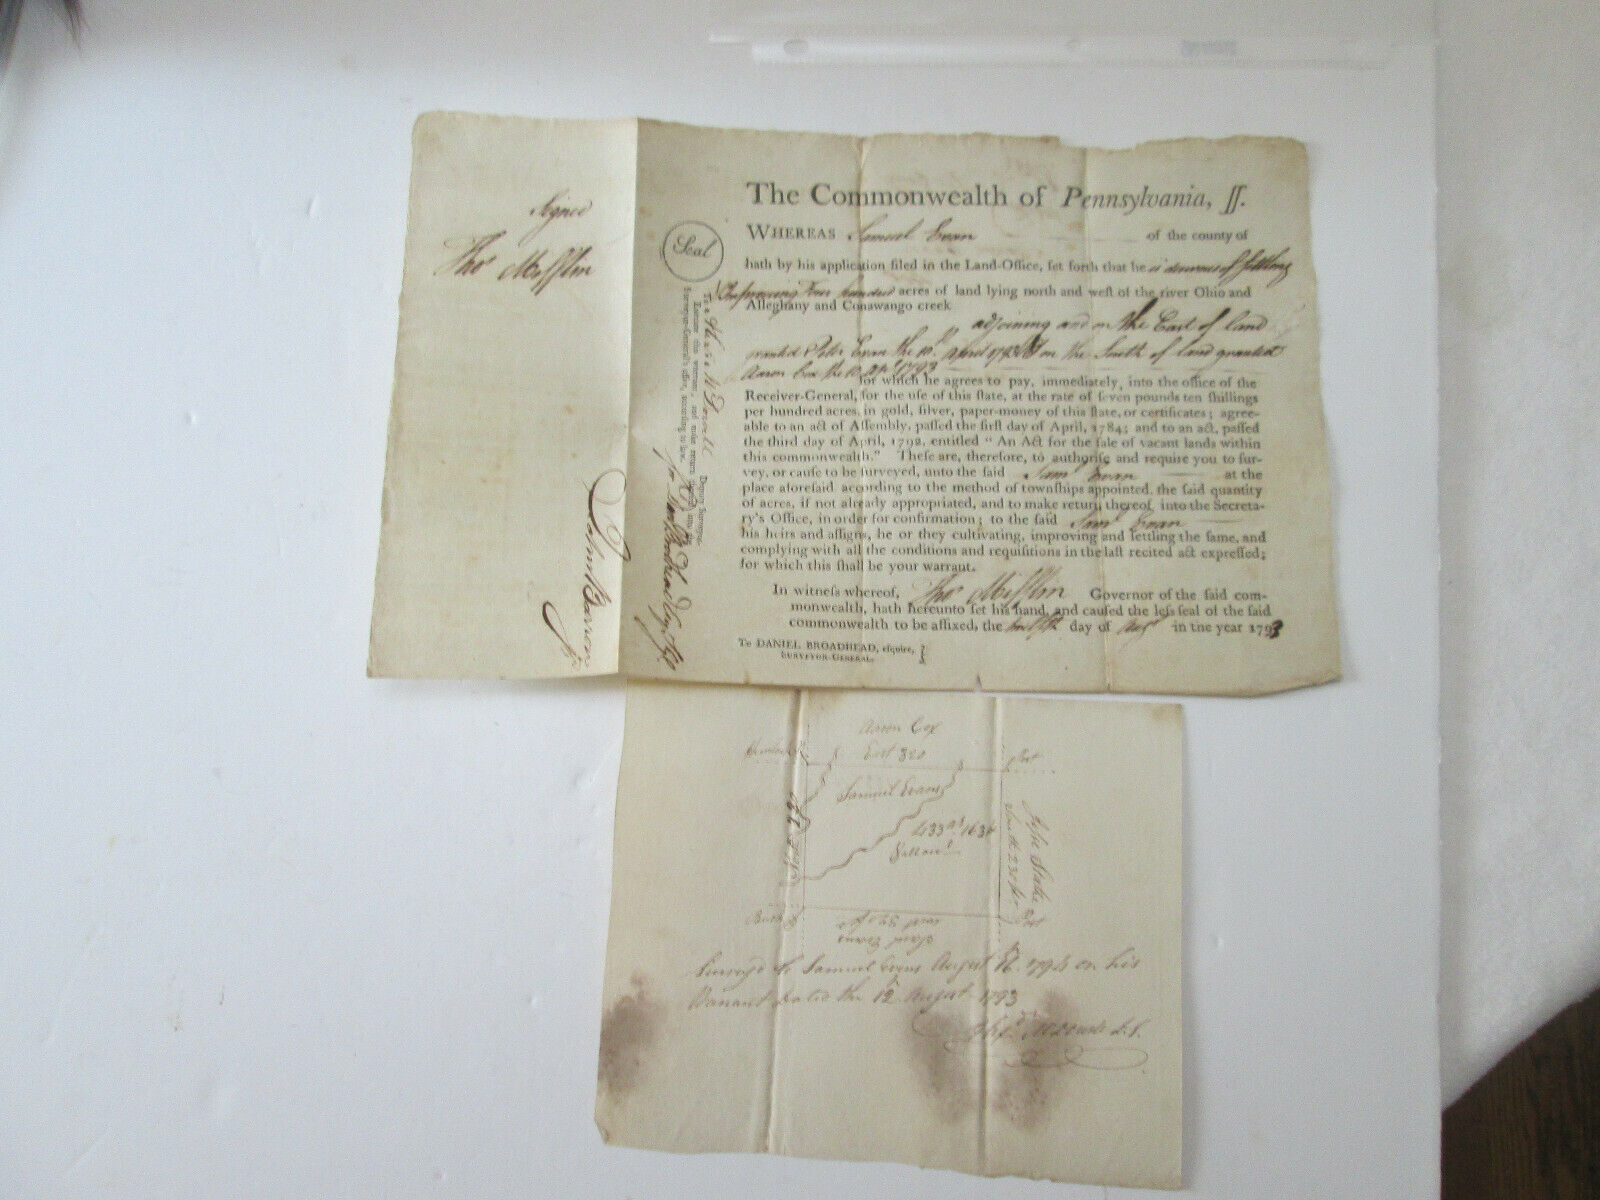 Signed
Thos Mifflin
John Barron
Jr
Seal
The Commonwealth of Pennsylvania, ſſ.
WHEREAS Samuel Evan of the county of
hath by his application filed in the Land-Office, ſet forth that he is desirous of settling
& Improving Four hundred acres of land lying north and weſt of the river Ohio and
Alleghany and Conawango creek
adjoining and on the East of land
granted Peter Evan the 10th April 1793 & on the South of land granted
Aaron Cox the 10 Apl 1793
for which he agrees to pay, immediately, into the office of the
Receiver-General, for the uſe of this ſtate, at the rate of ſeven pounds ten ſhillings
per hundred acres, in gold, ſilver, paper-money of this ſtate, or certificates; agree-
able to an act of Aſſembly, paſſed the firſt day of April, 1784; and to an act, paſſed
the third day of April, 1792, entitled “ An Act for the ſale of vacant lands within
this commonwealth.” Theſe are, therefore, to authoriſe and require you to ſur-
vey, or cauſe to be ſurveyed, unto the ſaid Saml Evan at the
place aforeſaid according to the method of townſhips appointed, the ſaid quantity
of acres, if not already appropriated, and to make return thereof into the Secreta-
ry's Office, in order for confirmation; to the ſaid Saml Evan
his heirs and aſſigns, he or they cultivating, improving and ſettling the ſame, and
complying with all the conditions and requiſitions in the laſt recited act expreſſed;
for which this ſhall be your warrant.
In witneſs whereof, Thos Mifflin Governor of the ſaid com-
monwealth, hath hereunto ſet his hand, and cauſed the leſs ſeal of the ſaid
commonwealth to be affixed, the twelfth day of Augt in the year 1793
To DANIEL BROADHEAD, eſquire,
SURVEYOR-GENERAL.
To Deputy Surveyor.
Execute this warrant, and make return thereof into the
Surveyor-General's office, according to law.
Aaron Cox
East 320
Post
Samuel Evans
433 as 163
Allowe
South 231
Post
West 320
Surveyd to Samuel Evans August 1794 on his
Warrant Dated the 12 August 1793
D.S.